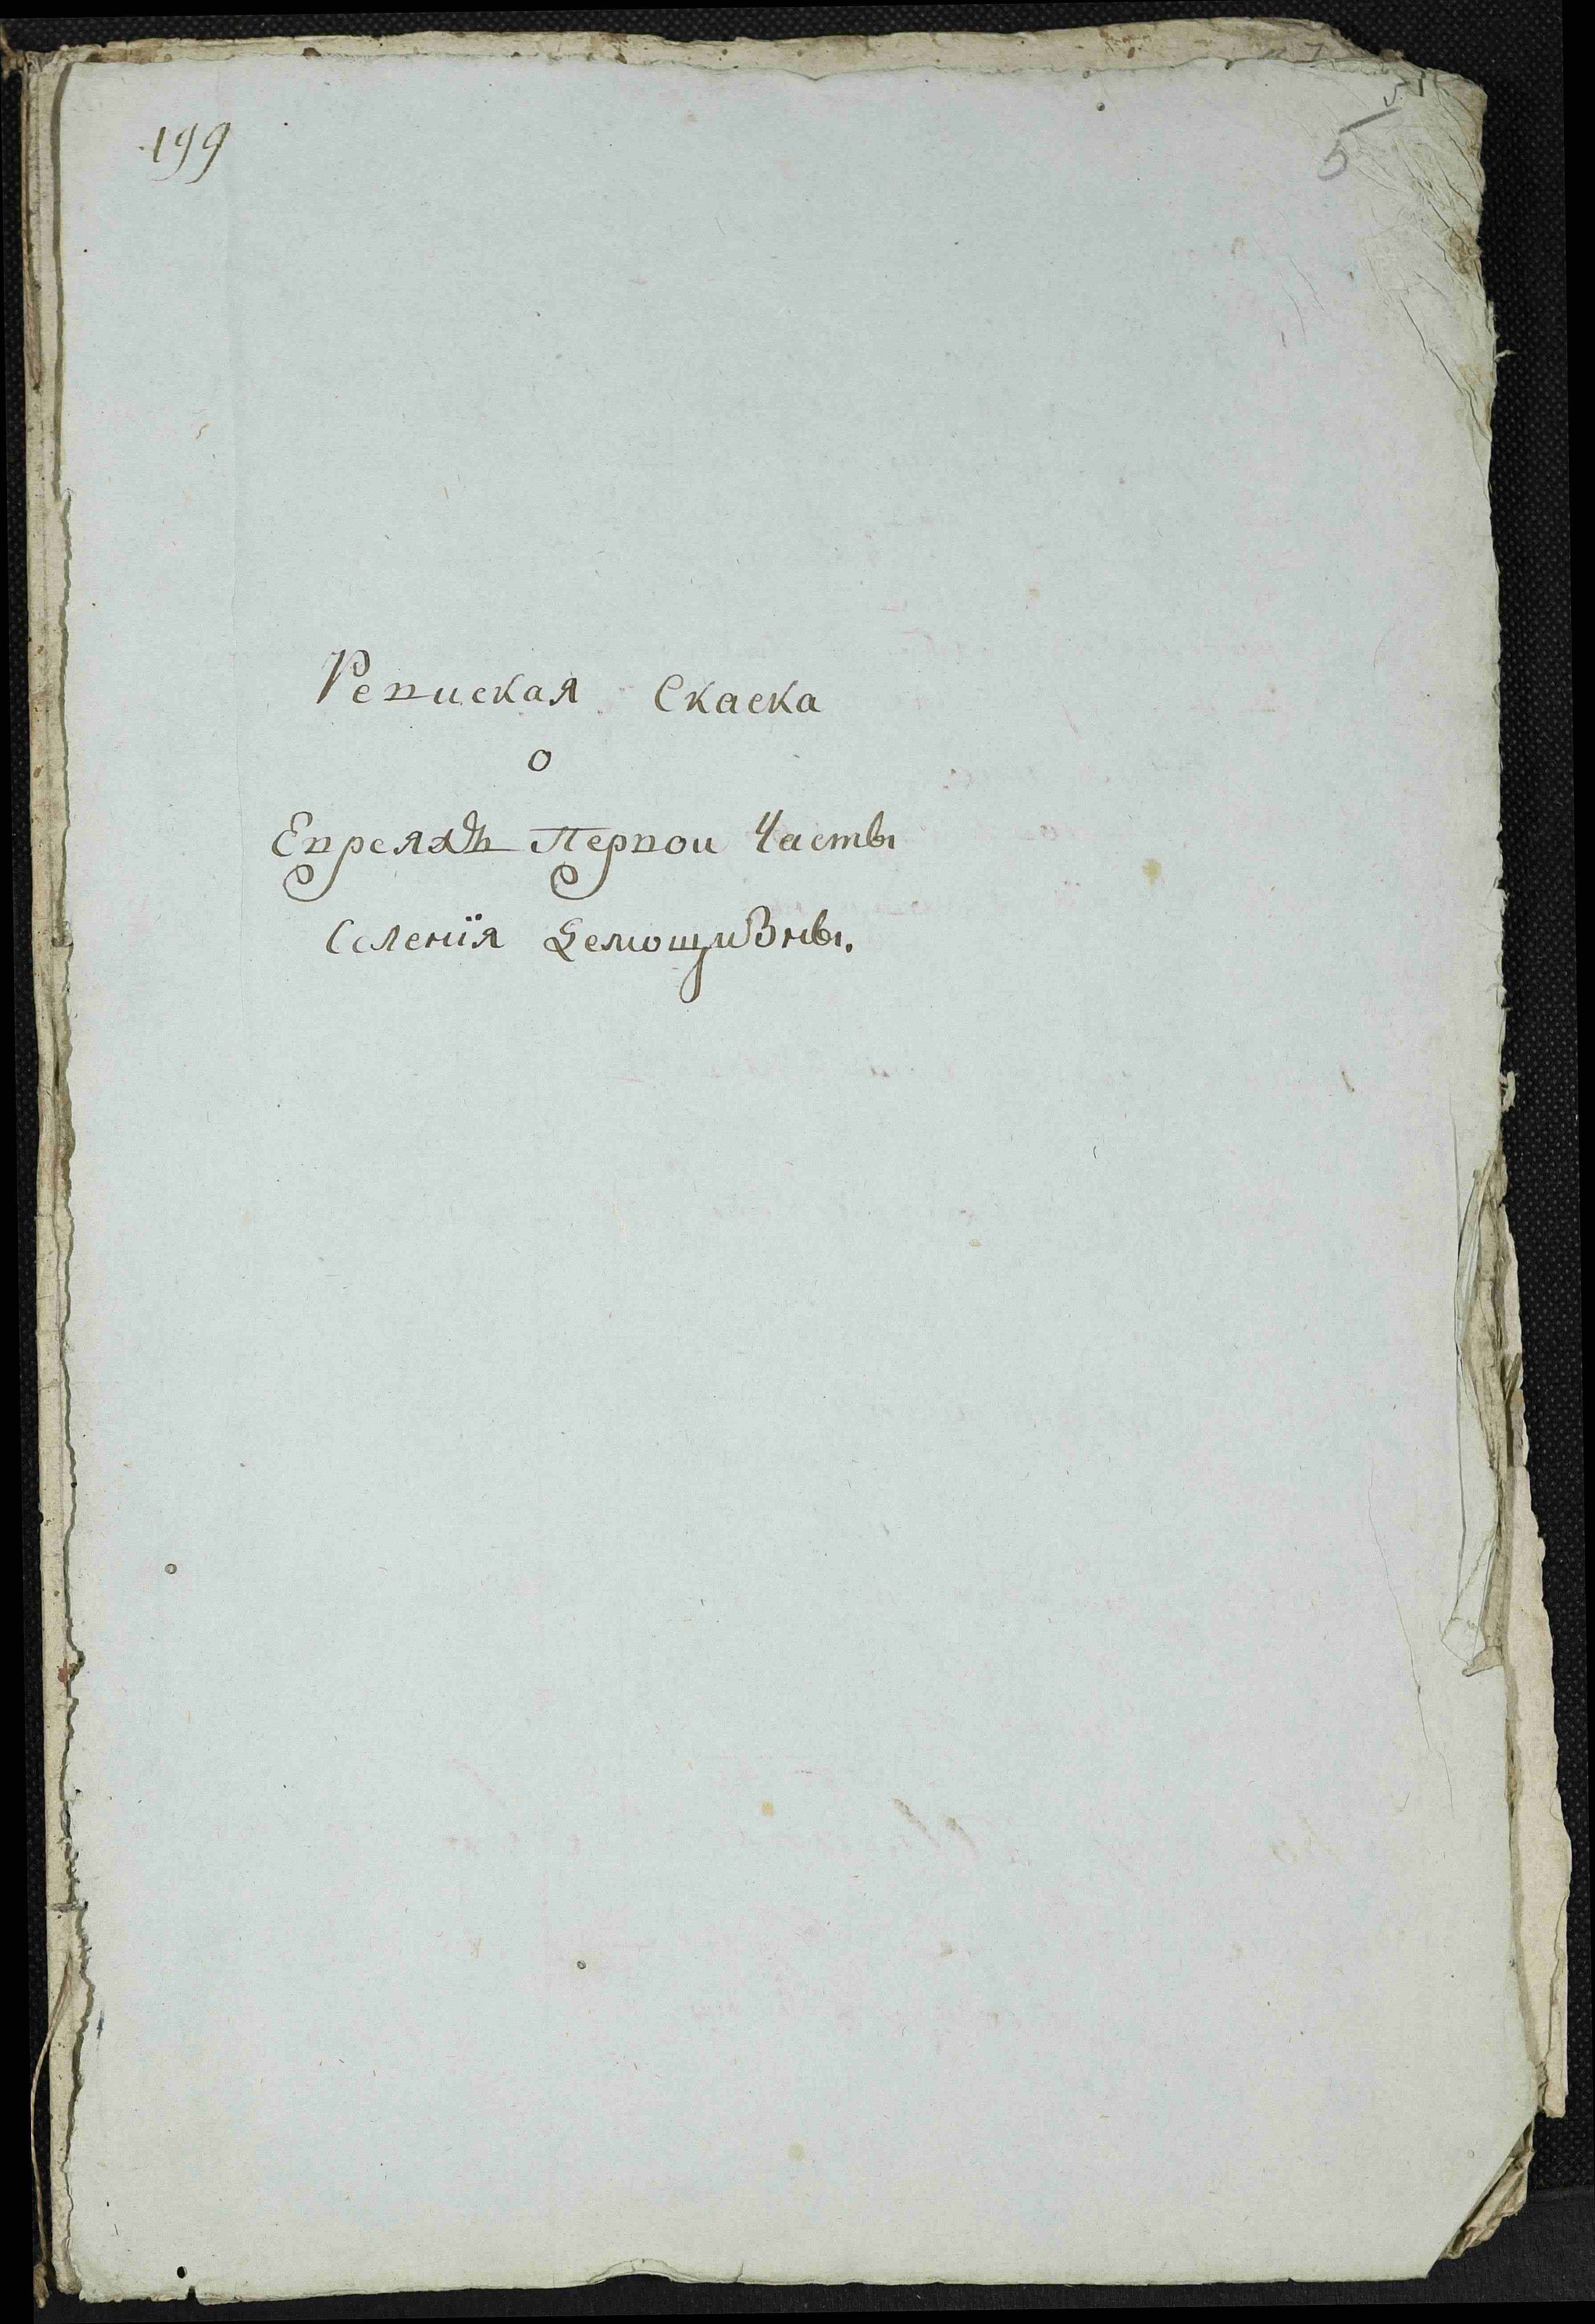 199
5
Ревиская Скаска
о
Евреяхъ Первои Часты
Селенїя Земощизны.